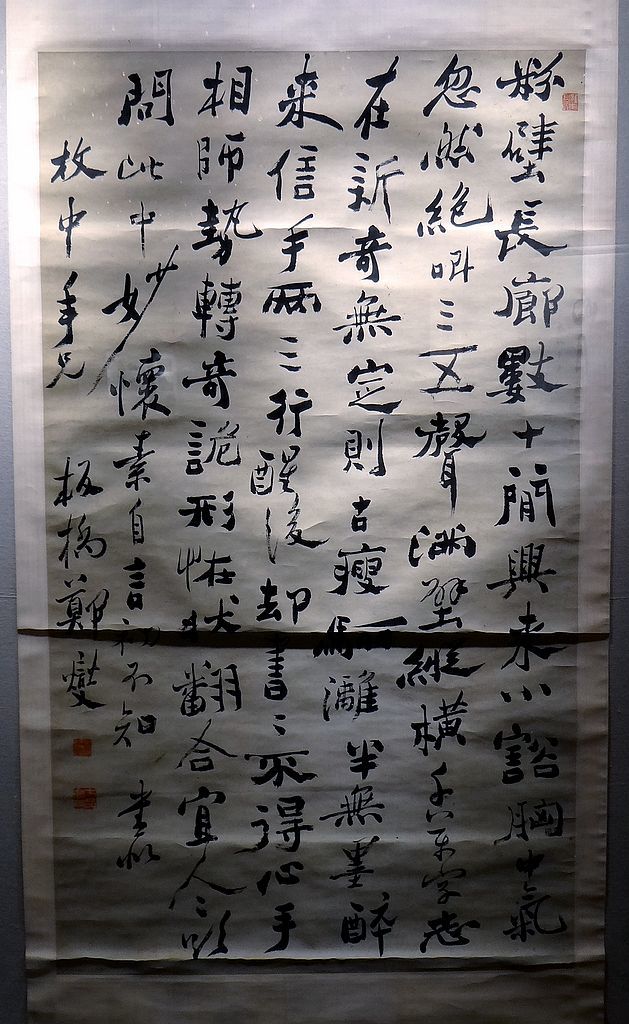 粉壁長廊數十間興來小豁胸中氣
忽然絕叫三五聲滿壁縱橫千萬字志
在新奇無定則古瘦驪灕半無墨醉
來信手兩三行醒後却書〻不得心手
相師勢轉奇詭形怪狀翻合宜人〻欲
問此中妙懷素自言初不知 書似
枚中年兄 板橋鄭燮